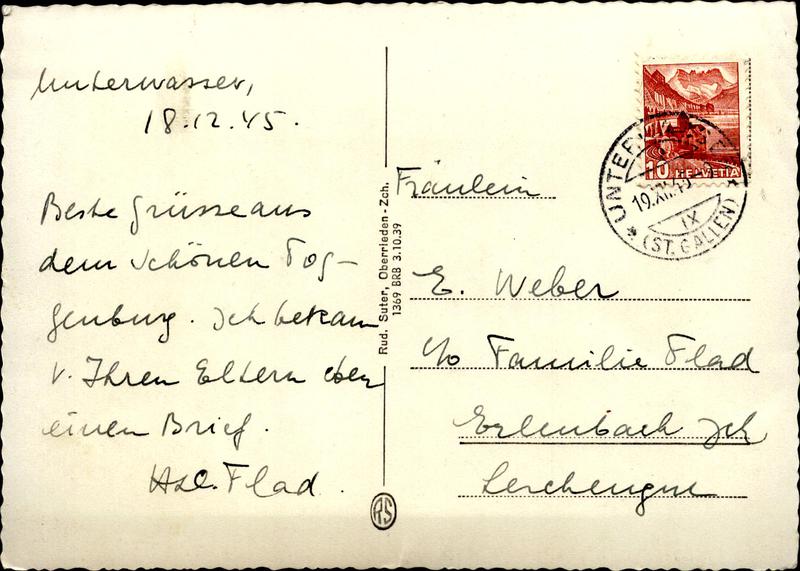 Unterwasser,
18.12.45.
Beste Grüsse aus
dem schönen Tog-
genburg. Ich bekam
v. Ihren Eltern eben
einen Brief.
Flad.
Rud. Suter, Oberrieden - Zch.
1369 BRB 3.10.39
RS
10 HELVETIA
UNTERWASSER
19.XII.45
IX
(ST. GALLEN)
Fräulein
E. Weber
c/o Familie Flad
Erlenbach Zch